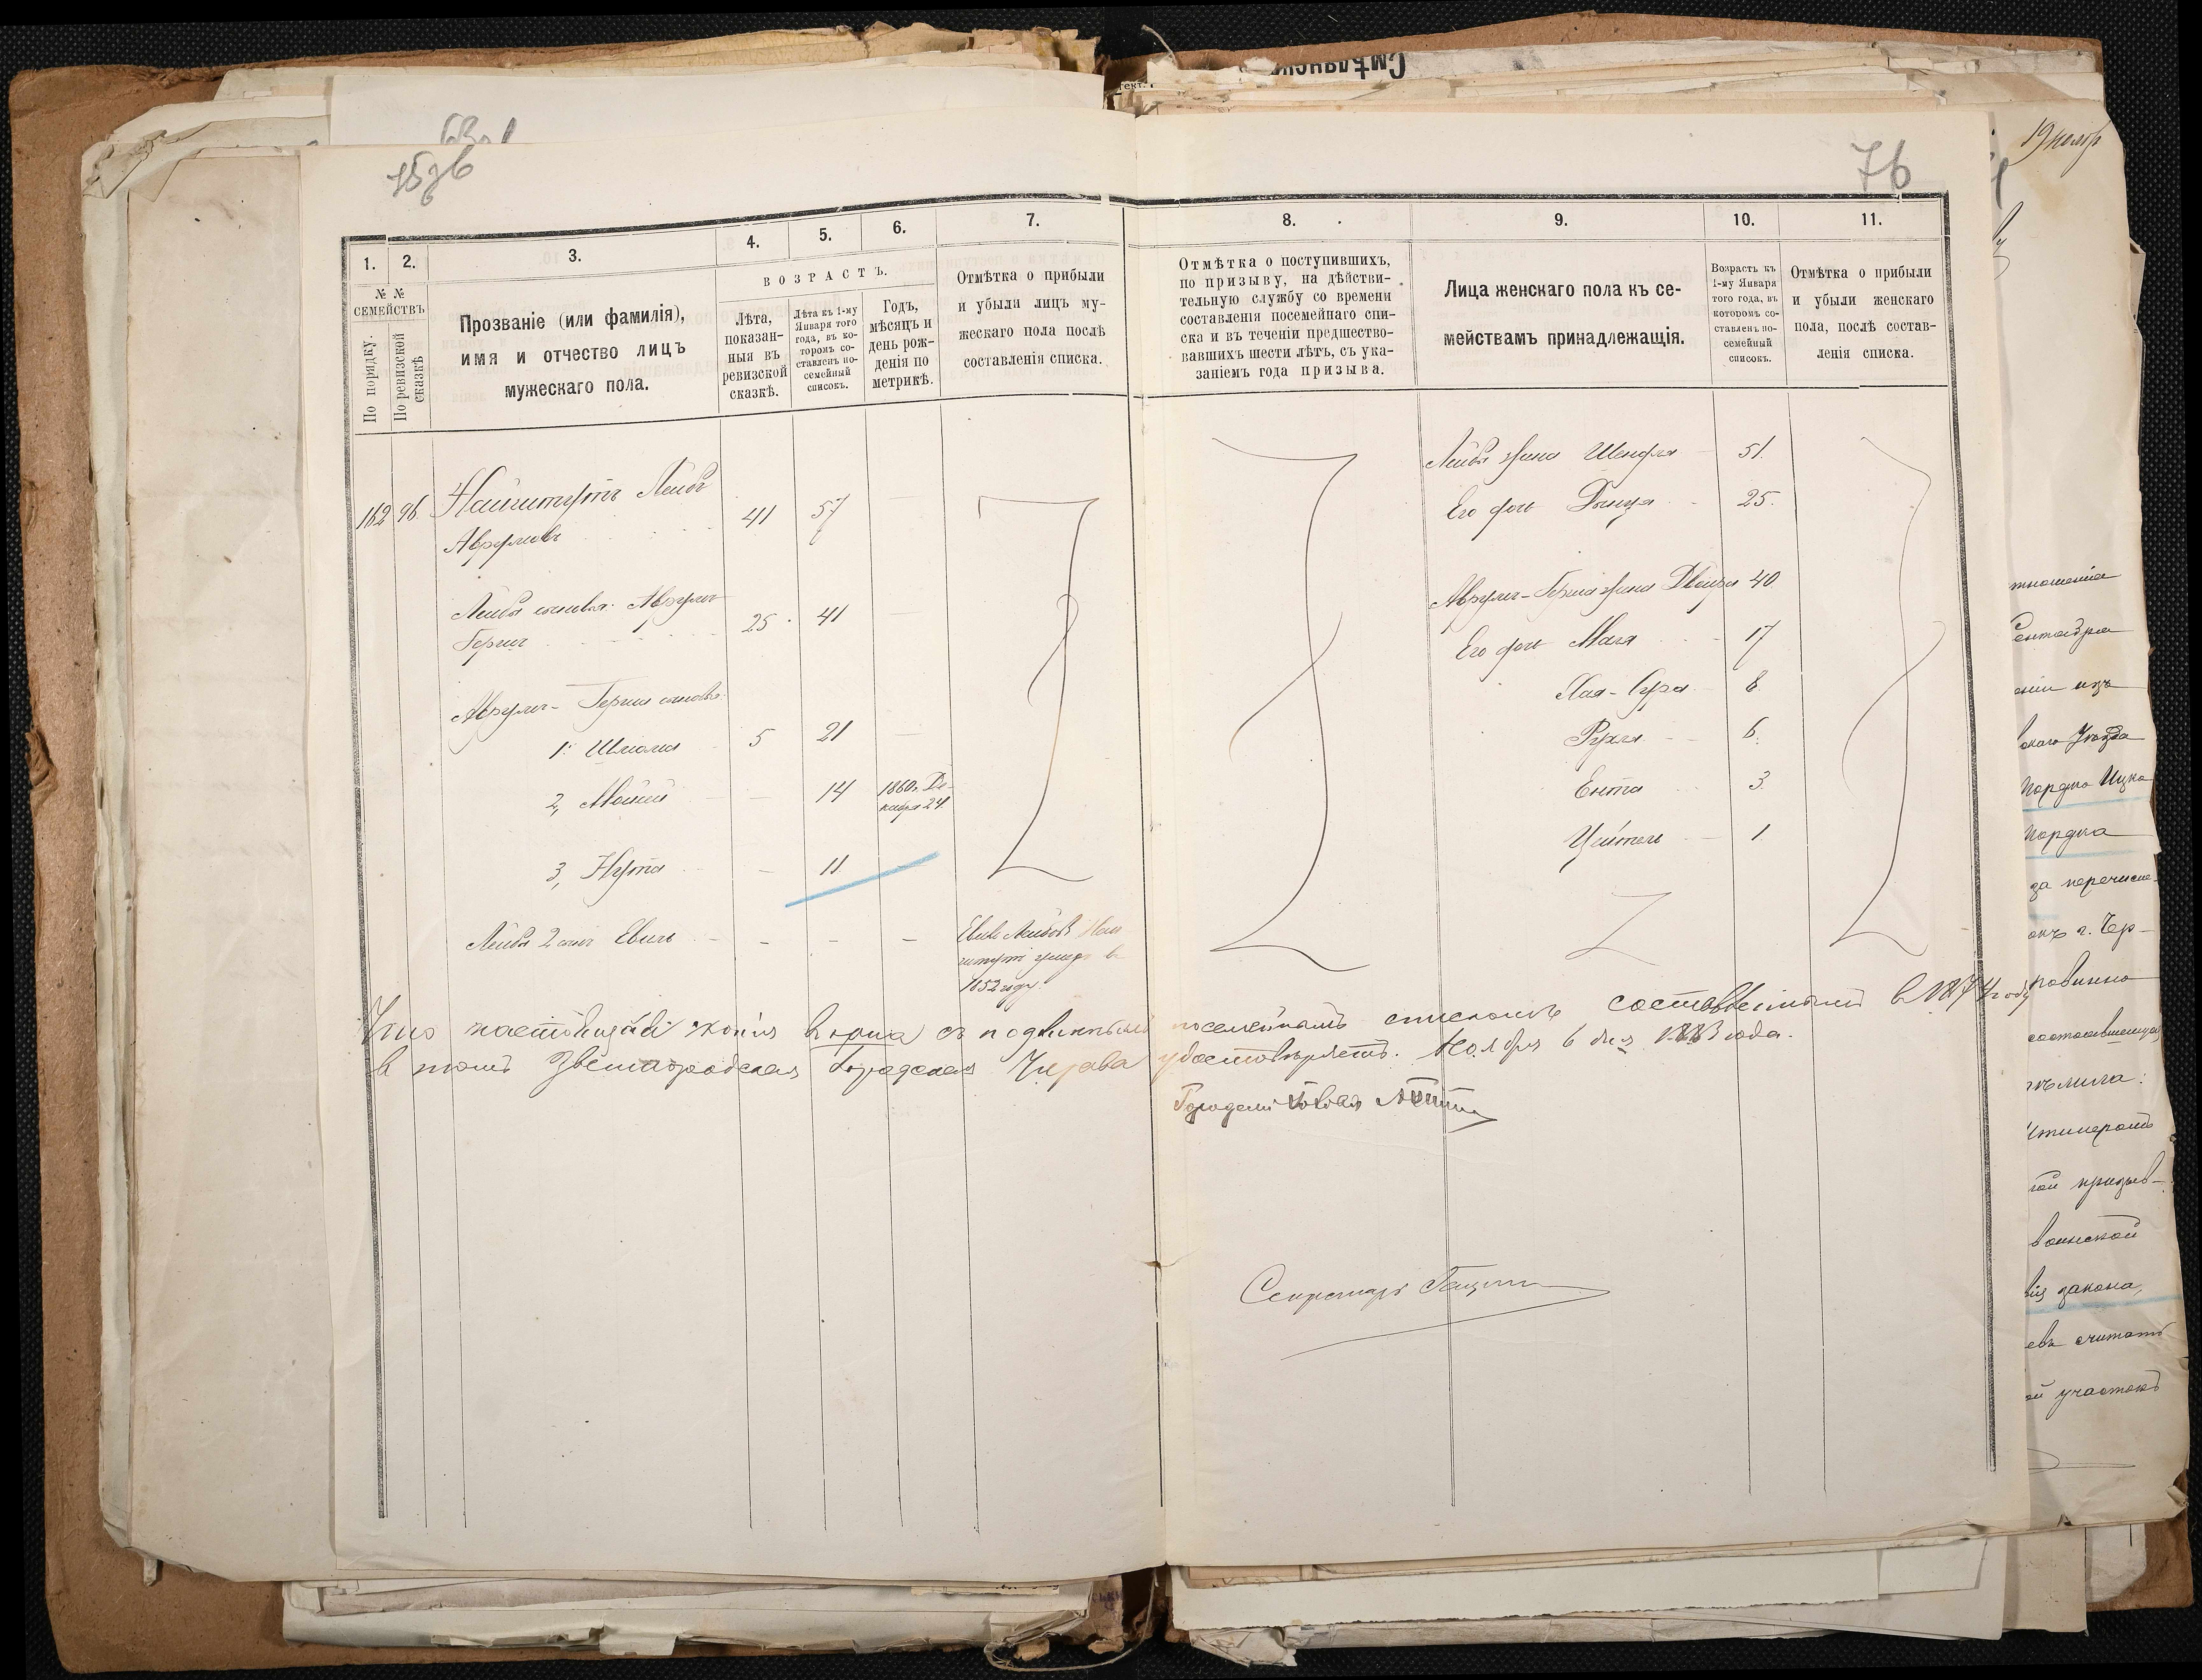 76
1.
2.
3.
4.
5.
6.
7.
№ №
СЕМЕЙСТВЪ
По порядку.
По ревизской
сказкѣ
Прозваніе (или фамилія),
имя и отчество лицъ
мужескаго пола.
ВОЗРАСТЪ.
Лѣта,
показан-
ныя въ
ревизской
сказкѣ.
Лѣта къ 1-му
Января того
года, въ ко-
торомъ со-
ставленъ по-
семейный
списокъ.
Годъ,
мѣсяцъ и
день рож-
денія по
метрикѣ.
Отмѣтка о прибыли
и убыли лицъ му-
жескаго пола послѣ
составленія списка.
162 96 Найштутъ Лейбъ
Аврумовъ 41 57
Лейбы сыновья: Аврумъ
Гершъ 25 41
Аврумъ-Герша сыновья:
1. Шлиома 5 21
2, Мойсей - 14 1860 г. Де-
кабря 24
3, Нута - 11
Лейбы 2 сынъ Евиль - - -
умеръ в
1852 году.
8.
9.
10.
11.
Отмѣтка о поступившихъ,
по призыву, на дѣйстви-
тельную службу со времени
составленія посемейнаго спи-
ска и въ теченіи предшество-
вавшихъ шести лѣтъ, съ ука-
заніемъ года призыва.
Лица женскаго пола къ се-
мействамъ принадлежащія.
Возрастъ къ
1-му Января
того года, въ
которомъ со-
ставленъ по-
семейный
списокъ.
Отмѣтка о прибыли
и убыли женскаго
пола, послѣ состав-
ленія списка.
Лейбы жена Шендля 51.
Его дочь 25.
Аврумъ-Герша жена Двойра 40
Его дочь Маля 17
Хая-Сура 8
Рухля 6.
Ента 3.
Цейтель 1
Что настоящая копія вѣрна съ подлиннымъ посемейнымъ спискомъ составленнымъ в 1874 году
в томъ Звенигородская Городская Управа удостовѣряетъ. Ноября 6 дня 1883 года.
Городской Голова
Секретарь
19 нояб
Смѣлянск
тношенія
Сентября
ніи изъ
скаго Уѣзда
Мордко Ицко
Мордка
за перечисле-
окъ г. Чер-
повинно
состоявшемуся
воинской
закона,
считать
й участокъ